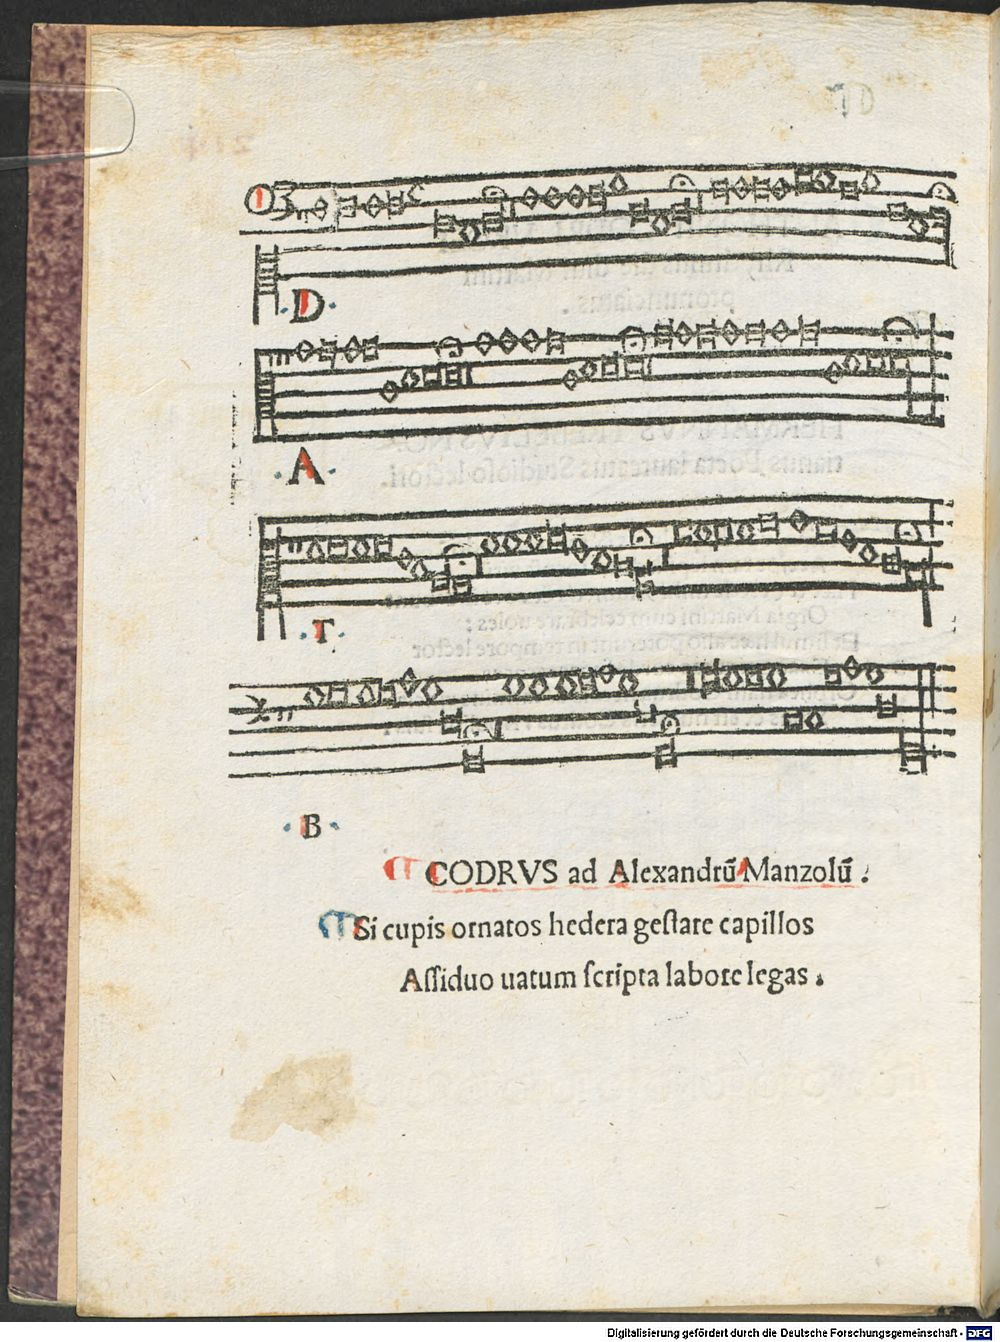 ·D·
·A·
·T·
·B·
CODRVS ad Alexandrū Manzolū .
Si cupis ornatos hedera geſtare capillos
Aſſiduo uatum ſcripta labore legas .
Digitalisierung gefördert durch die Deutsche Forschungsgemeinschaft - DFG